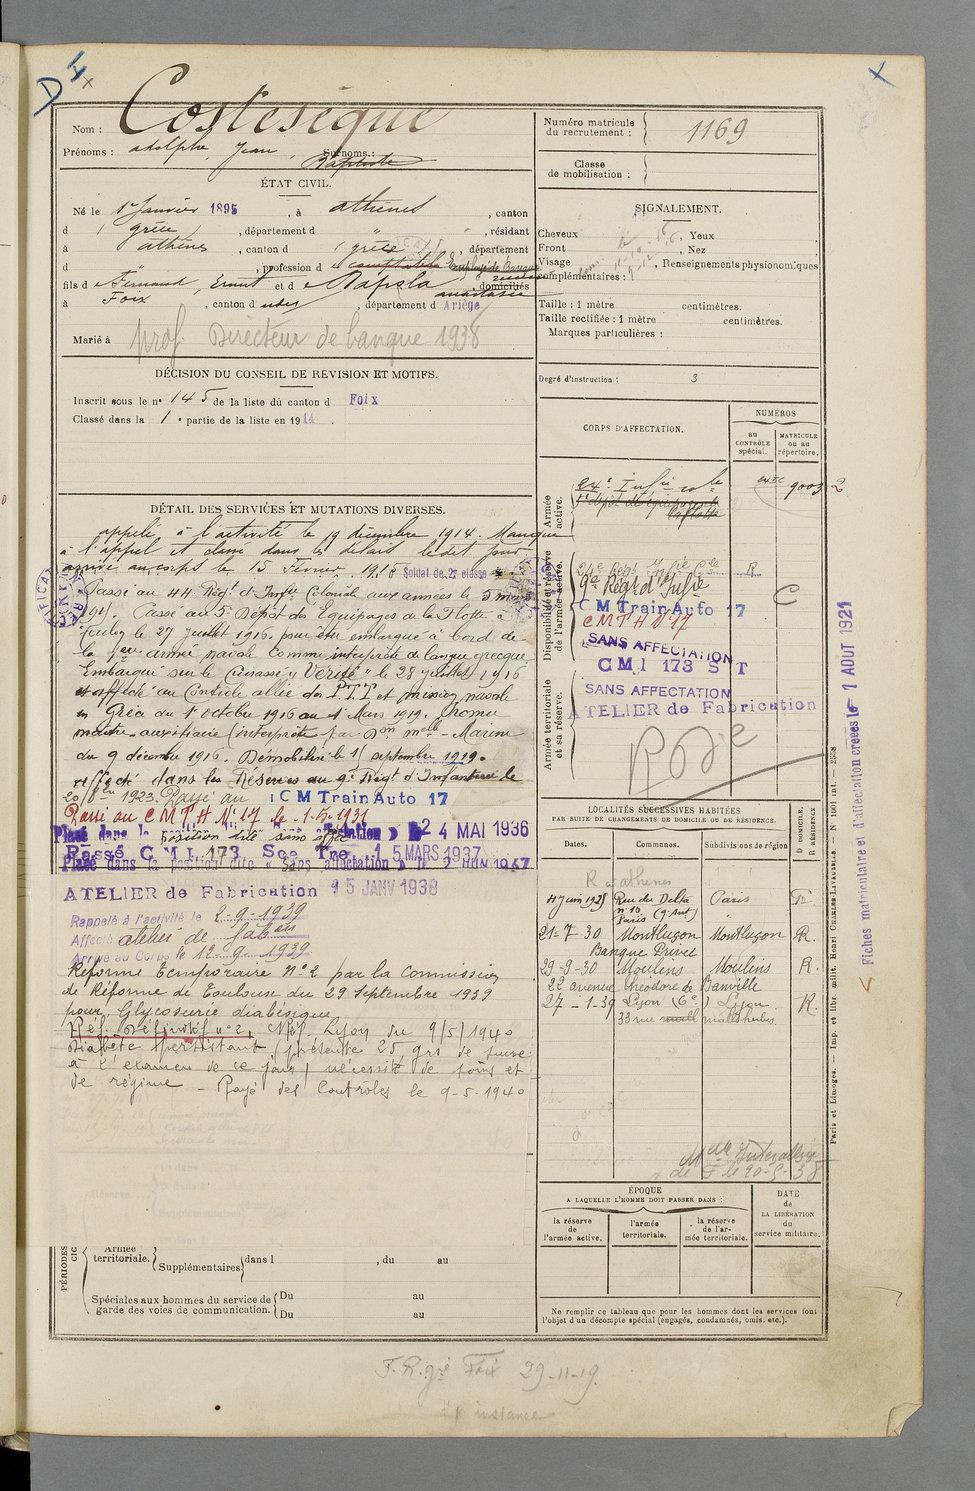 D I
Nom : Costesèque
Prénoms : adolphe, Jean, Surnoms : Baptiste
ÉTAT CIVIL.
Né le 1er Janvier 1895, à athènes, canton
d (grèce), département d " ", résidant
à athènes, canton d (grèce), département
d , profession d Employé de Banque
fils d e Fernand, Ernest et d e Rapsla anastasie, domiciliés
à Foix, canton d udes, département d Ariège
Marié à
prof. Directeur de banque 1938
DÉCISION DU CONSEIL DE REVISION ET MOTIFS.
Inscrit sous le no 145 de la liste du canton d Foix
Classé dans la 1e partie de la liste en 1914.
DÉTAIL DES SERVICES ET MUTATIONS DIVERSES.
appelé à l'activité le 19 décembre 1914. Manque
à l'appel et classé dans les délais ledit jour
arrivé au corps le 15 Février 1915 Soldat de 2e classe
Passé au 44 Régt d'Infie Colonial aux armées le 5 mars
191. Passé au 5e Dépôt des Equipages de la Flotte à
Toulon le 27 juillet 1916. pour être embarqué à bord de
la 1ere armée navale comme interprète de langue grecque
Embarqué sur le Cuirassé "Vérité" le 28 juillet 1916
et affecté au Contrôle allié des P.T.T et mission navale
en Grèce du 1er octobre 1916 au 1er Mars 1919. Promu
maître-auxiliaire (interprète par Don melle Marine
du 9 décembre 1916. Démobilisé le 1er septembre 1919.
Affecté dans la Réserve au 9e Régt d'Infanterie le
1923. Passé au CM Train Auto 17
Passé au C M T H No 17 le 1-5-1931
Placé dans la position dite sans affectation le 24 MAI 1936
Passé C M I 173 Sec Tre 15 MARS 1937
Placé dans la position dite « Sans affectation » le 2 JUIN 1937
ATELIER de Fabrication 15 JANV 1938
Rappelé à l'activité le 2-9-1939
Affecté atelier de fabon
Arrivé au Corps le 12-9-1939
Réforme Temporaire no 2 par la Commission
de Réforme de Toulouse du 29 Septembre 1939
pour Glycosurie diabésique
Réf. Définitif no 2, Lyon du 9/5/1940
Diabète persistant (présente 25 grs de sucre
à l'examen de ce jour) nécessité de soins et
de régime - Rayé des Contrôles le 9-5-1940
PÉRIODES
Armée territoriale. { Supplémentaires { dans l , du au
Spéciales aux hommes du service de garde des voies de communication. { Du au
{ Du au
Numéro matricule du recrutement : 1169
Classe de mobilisation :
SIGNALEMENT.
Cheveux , Yeux
Front , Nez
Visage , Renseignements physionomiques
complémentaires :
Taille : 1 mètre centimètres.
Taille rectifiée : 1 mètre centimètres.
Marques particulières :
Degré d'instruction : 3
CORPS D'AFFECTATION.
NUMÉROS
au CONTRÔLE spécial.
MATRICULE ou au répertoire.
Armée active.
24e Infie cole
9003 2
5e dépôt des équipages de la flotte
Disponibilité et réserve de l'armée active.
24e Régt Infie Cle R
9e Régt d'Infie
C
C M Train Auto 17
C M T H No 17
SANS AFFECTATION
C M I 173 S T
Armée territoriale et sa réserve.
SANS AFFECTATION
ATELIER de Fabrication
LOCALITÉS SUCCESSIVES HABITÉES
PAR SUITE DE CHANGEMENTS DE DOMICILE OU DE RÉSIDENCE.
Dates. Communes. Subdivisions de région D DOMICILE, R RÉSIDENCE
R à athènes
4 Juin 1925 Rue du Delta no 10 Paris (9e Arrt) Paris
21-7-30 Montluçon Montluçon R.
Banque Privée
29-9-30 Moulins Moulins R.
22 avenue Théodore de Banville
27-1-39 Lyon (6e) Lyon R.
33 rue malesherbes
ÉPOQUE
A LAQUELLE L'HOMME DOIT PASSER DANS :
la réserve de l'armée active.
l'armée territoriale.
la réserve de l'armée territoriale.
DATE de LA LIBÉRATION du service militaire.
Ne remplir ce tableau que pour les hommes dont les services font
l'objet d'un décompte spécial (engagés, condamnés, omis, etc.).
Fiches matriculaire et d'affectation créées le 1 AOUT 1921
Paris et Limoges. — Imp. et libr. milit. Henri CHARLES-LAVAUZELLE.
F.R. Foix 29-11-19.
instance